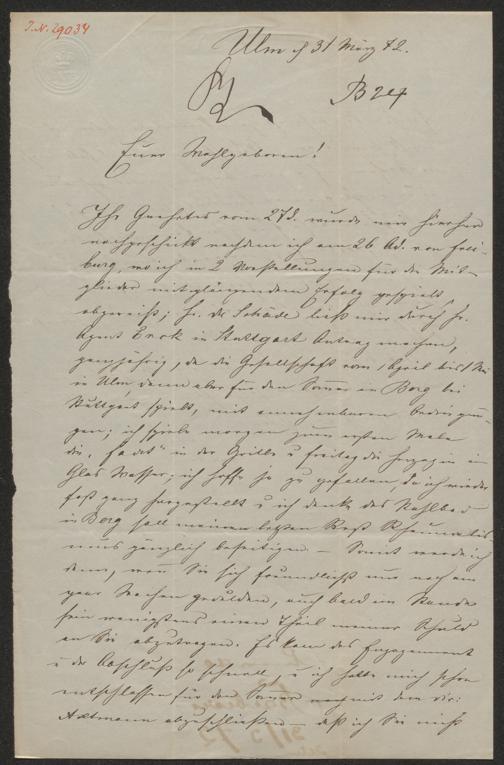 J.N. 29034
Ulm d 31 März 72.
B 24
Euer Wohlgeboren!
Ihr Geehrtes vom 27 d. wurde mir hierher
nachgeschickt nachdem ich am 26 d. von Frei-
burg, wo ich in 2 Vorstellungen für die Mit-
glieder mit glänzendem Erfolg gespielt
abgereist; H. Dir Schädl ließ mir durch H.
Agent Erck in Stuttgart Antrag machen,
ganzjährig, da die Gesellschaft vom April bis
in Ulm, dann aber für den Sommer in Berg bei
Stuttgart spielt, mit annehmbaren Bedingun-
gen; ich spiele morgen zum ersten Male
die "Fadet" in der Grille u freitag die Herzogin im
Glas Wasser; ich hoffe ja zu gefallen, da ich wieder
fast ganz hergestellt u ich denke das Stahlbad
in Berg soll meinen letzten Rest Rheumatis-
mus gänzlich beseitigen – Somit werde ich
denn, wenn Sie sich freundlichst nur noch ein
paar Wochen gedulden, auch bald im Stande
sein wenigstens einen Theil meiner Schuld
an Sie abzutragen. Es kam das Engagement
u der Abschluß so schnell, u ich hatte mich schon
entschlossen für den Sommer noch mit dem Dir:
Aktmann abzuschließen – daß ich Sie nicht